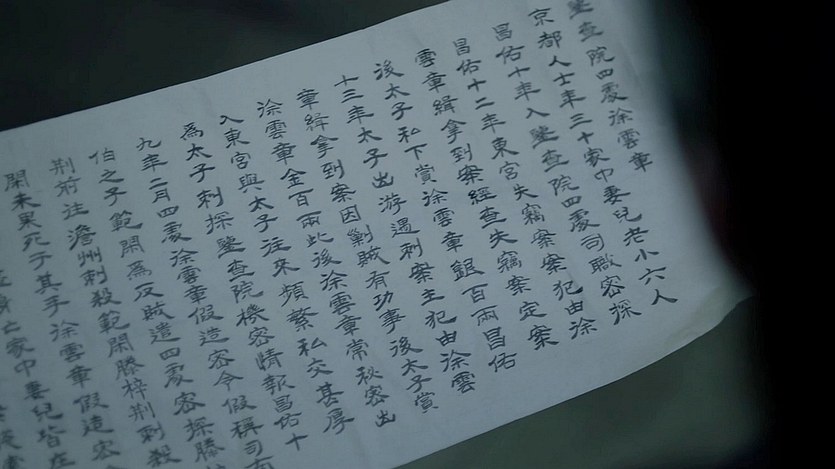 鑒查院四處徐雲章
京都人士年三十家中妻兒老小六人
昌佑十年入鑒查院四處司職密探
昌佑十二年東宮失竊案案犯由徐
雲章緝拿到案經查失竊案定案
後太子私下賞徐雲章銀百兩昌佑
十三年太子出游遇刺案主犯由徐雲
章緝拿到案因剿賊有功事後太子賞
徐雲章金百兩此後徐雲章常秘密出
入東宮與太子往來頻繁私交甚厚
為太子刺探鑒查院機密情報昌佑十
九年二月四處徐雲章假造密令假稱司南
伯之子範閑為反賊遣四處密探滕
荆前往澹州刺殺範閑滕梓荆刺殺
閑未果死于其手徐雲章假造密
身亡家中妻兒皆在